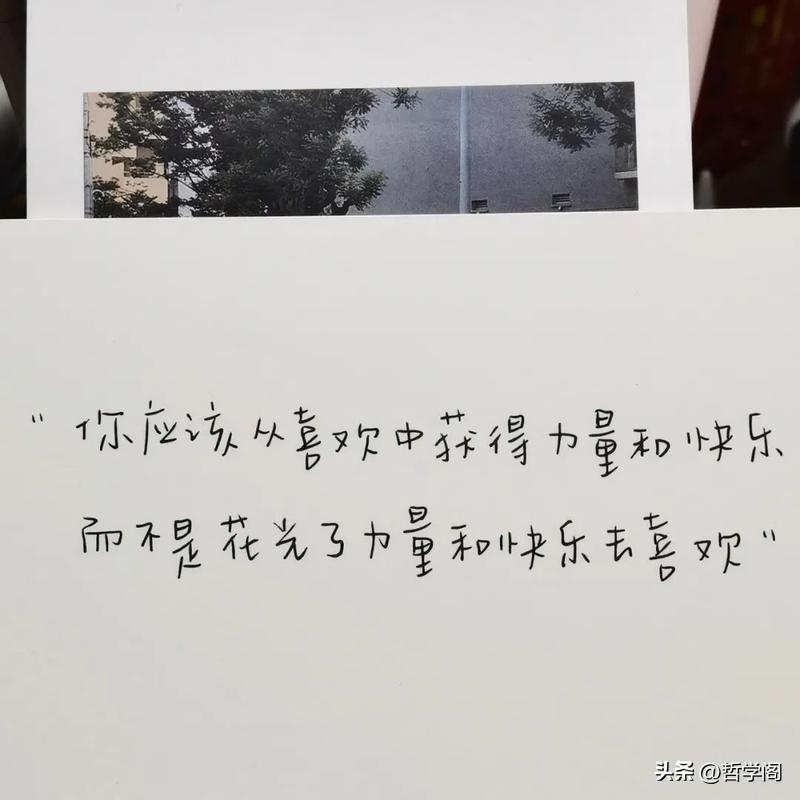 “你应该从喜欢中获得力量和快乐
而不是花光了力量和快乐去喜欢”
头条 @哲学阁